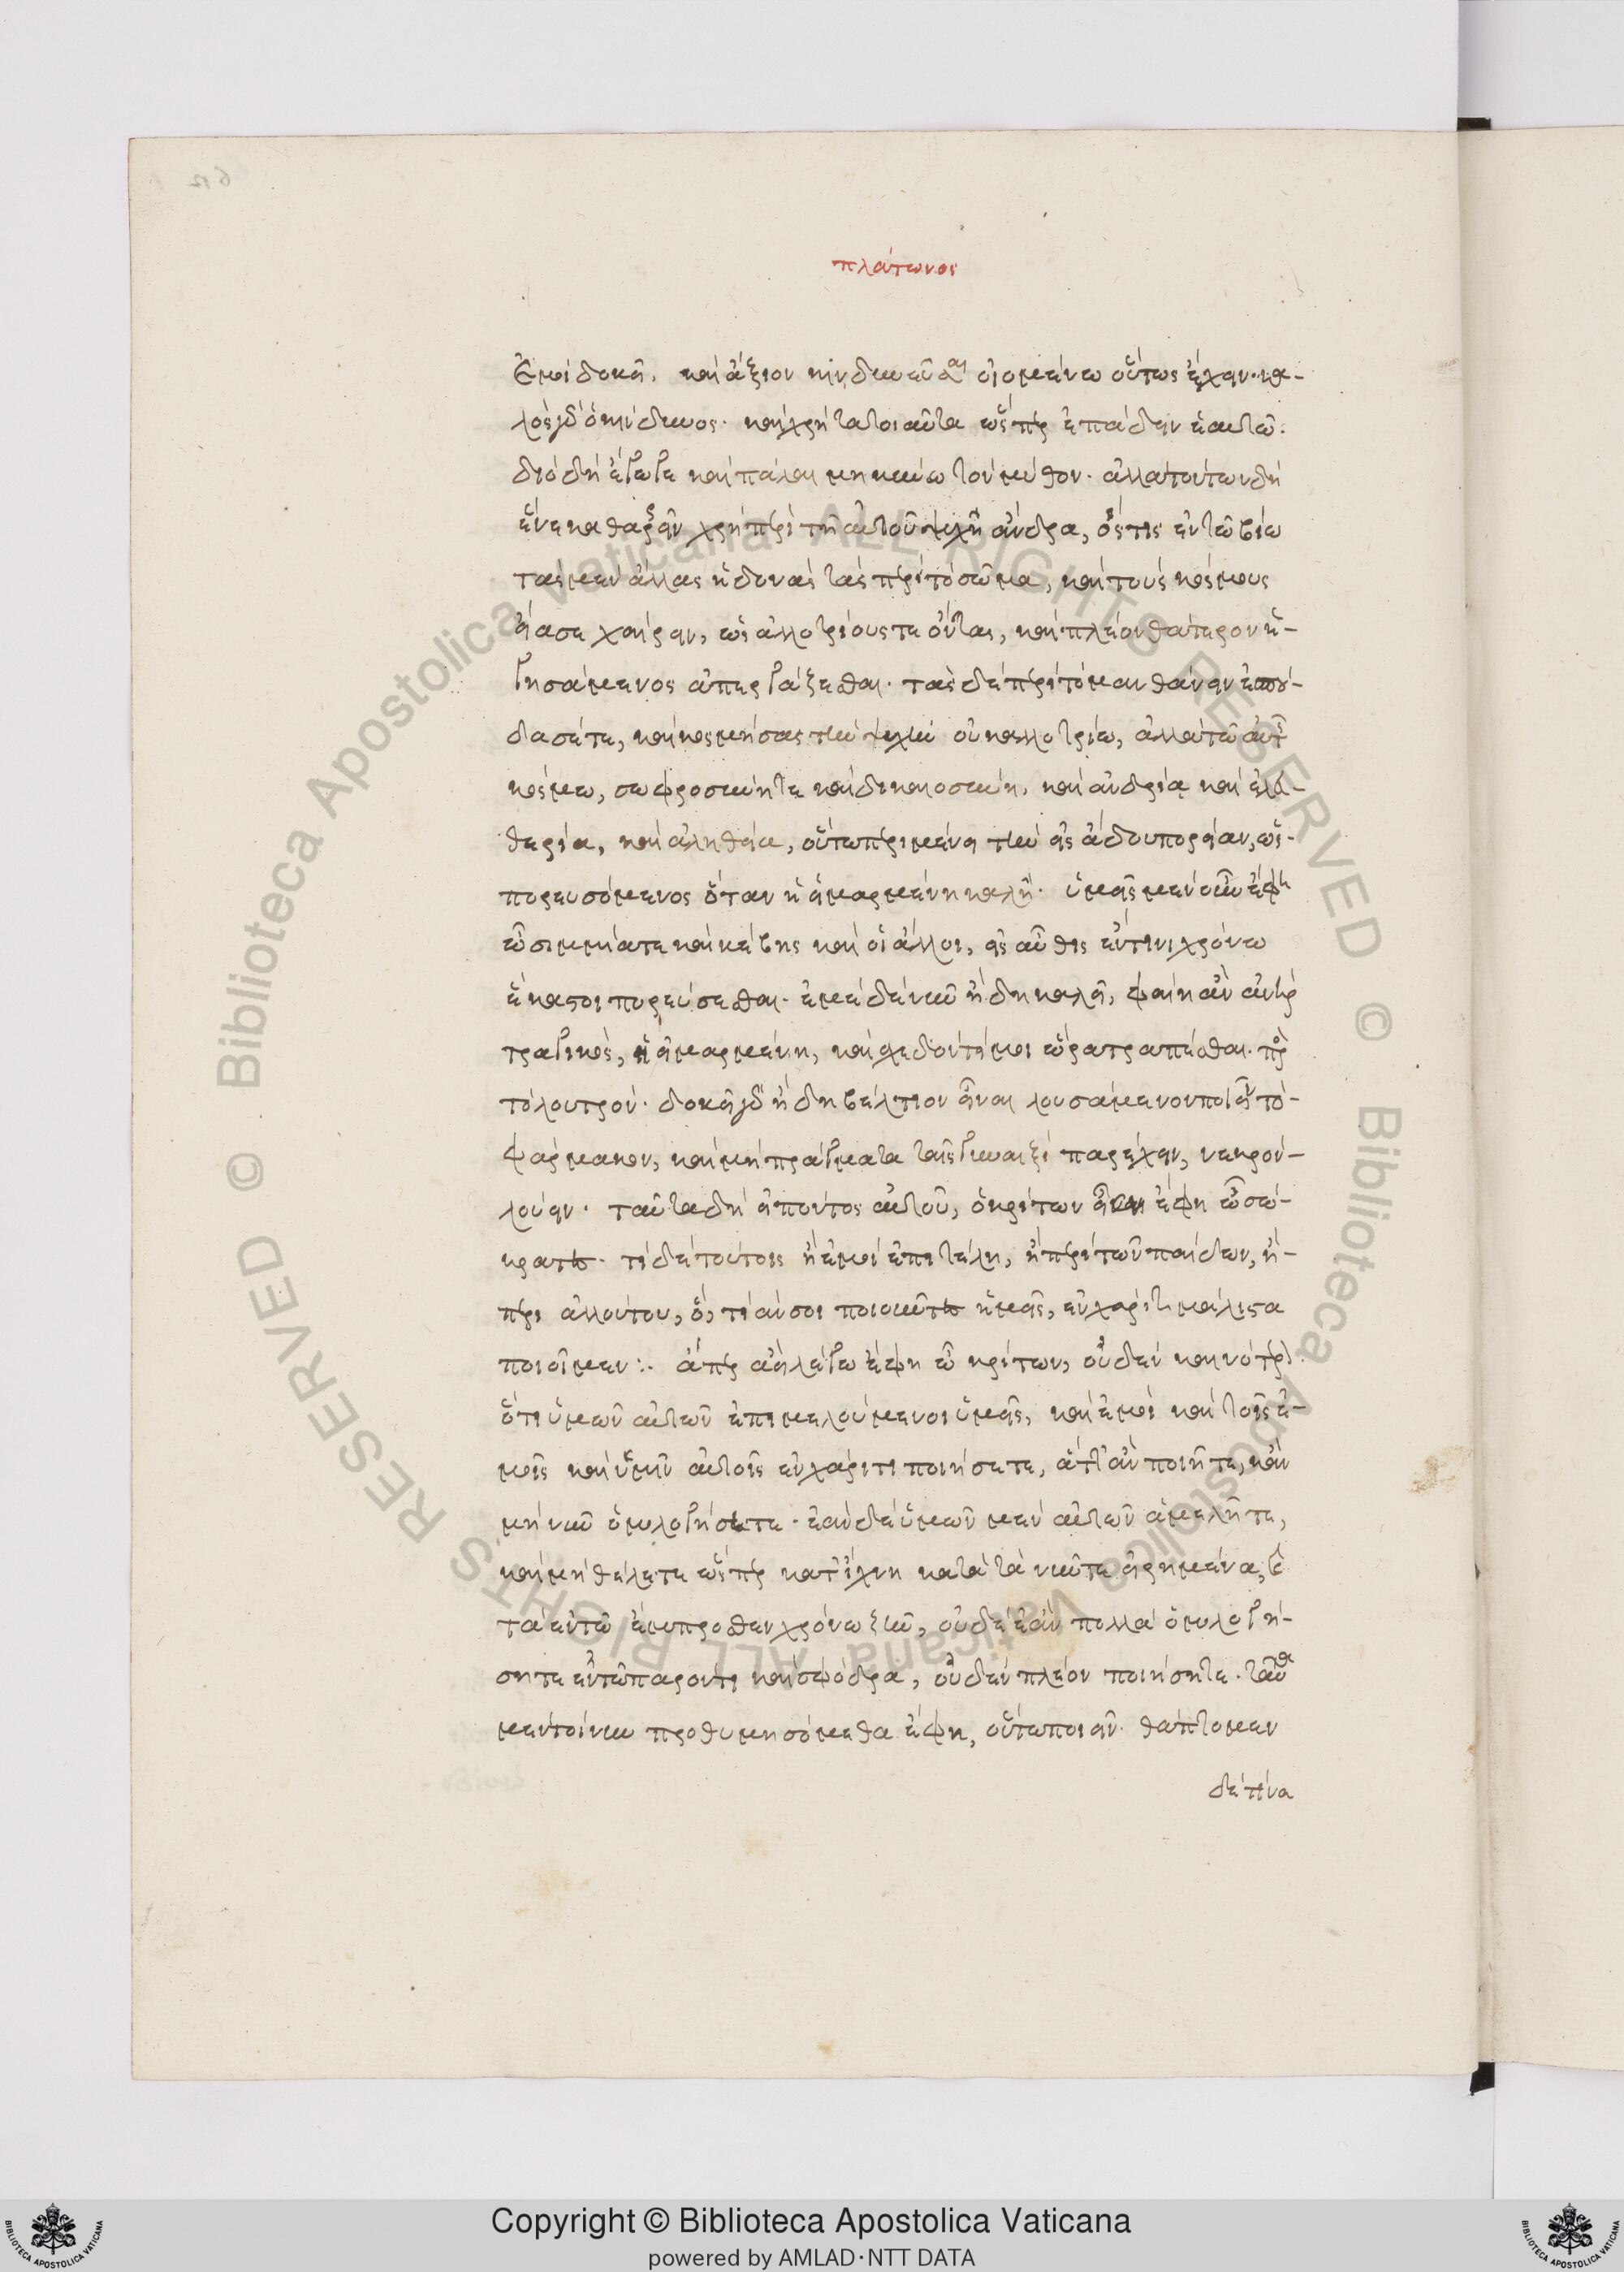 πλάτωνος
ἐμοὶ δοκεῖ. καὶ ἄξιον κινδυνεῦσαι οἰομένω οὕτως ἔχειν. κα-
λὸς γὰρ ὁ κίνδυνος. καὶ χρὴ τὰ τοιαῦτα ὥσπερ ἐπάδειν ἑαυτῶ.
διὸ δὴ ἔγωγε καὶ πάλαι μηκύνω τὸν μύθον. ἀλλὰ τούτων δὴ
ἕνεκα θαρρεῖν χρὴ περὶ τῆ αὑτοῦ ψυχῆ ἄνδρα, ὅστις ἐν τῶ βίω
τὰς μὲν ἄλλας ἡδονὰς τὰς περὶ τὸ σῶμα, καὶ τοὺς κόσμους
εἴασε χαίρειν, ὡς ἀλλοτρίους τε ὄντας, καὶ πλέον θάτερον ἡ-
γησάμενος ἀπεργάζεσθαι. τὰς δὲ περὶ τὸ μανθάνειν ἐσπού-
δασέ τε, καὶ κοσμήσας τὴν ψυχὴν οὐκ ἀλλοτρίω, ἀλλὰ τῶ αὑτῆς
κόσμω, σωφροσύνη τε καὶ δικαιοσύνη, καὶ ἀνδρία καὶ ἐλευ-
θερία, καὶ ἀληθεία, οὕτω περιμένει τὴν εἰς ἅδου πορείαν, ὡς
πορευσόμενος ὅταν ἡ εἱμαρμένη καλῆ. ὑμεῖς μὲν οὖν ἔφη
ὦ σιμμία τε καὶ κέβης καὶ οἱ ἄλλοι, εἰς αὖθις ἔν τινι χρόνω
ἕκαστοι πορεύσεσθαι. ἐμὲ δὲ νῦν ἤδη καλεῖ, φαίη ἂν ἀνὴρ
τραγικὸς, ἡ εἱμαρμένη, καὶ σχεδόν τί μοι ὥρα τραπέσθαι. πρὸς
τὸ λουτρόν. δοκεῖ γὰρ ἤδη βέλτιον εἶναι λουσάμενον πιεῖν τὸ
φάρμακον, καὶ μὴ πράγματα ταῖς γυναιξὶ παρέχειν, νεκρὸν
λούειν. ταῦτα δὴ εἰπόντος αὐτοῦ, ὁ κρίτων εἶεν ἔφη ὦ σώ-
κρατες. τί δὲ τούτοις ἢ ἐμοὶ ἐπιτέλη, ἢ περὶ τῶν παίδων, ἢ
περὶ ἄλλου του, ὅ, τι ἄν σοι ποιοῦντες ἡμεῖς, ἐν χάριτι μάλιστα
ποιοῖμεν :. ἅπερ ἀεὶ λέγω ἔφη ὦ κρίτων, οὐδὲν καινότερον
ὅτι ὑμῶν αὐτῶν ἐπιμελούμενοι ὑμεῖς, καὶ ἐμοὶ καὶ τοῖς ἐ-
μοῖς καὶ ὑμῖν αὐτοῖς ἐν χάριτι ποιήσετε, ἅττ' ἂν ποιῆτε, κἂν
μὴ νῦν ὁμολογήσητε. ἐὰν δὲ ὑμῶν μὲν αὐτῶν ἀμελῆτε,
καὶ μὴ θέλετε ὥσπερ κατ' ἴχνη κατὰ τὰ νῦν τε εἰρημένα, καὶ
τὰ ἐν τῶ ἔμπροσθεν χρόνω ζῆν, οὐδὲ ἐὰν πολλὰ ὁμολογή-
σητε ἐν τῶ παρόντι καὶ σφόδρα, οὐδὲν πλέον ποιήσητε. ταῦτα
μέντοι νυν προθυμησόμεθα ἔφη, οὕτω ποιεῖν. θάπτομεν
δέ τινα
Copyright © Biblioteca Apostolica Vaticana
powered by AMLAD·NTT DATA